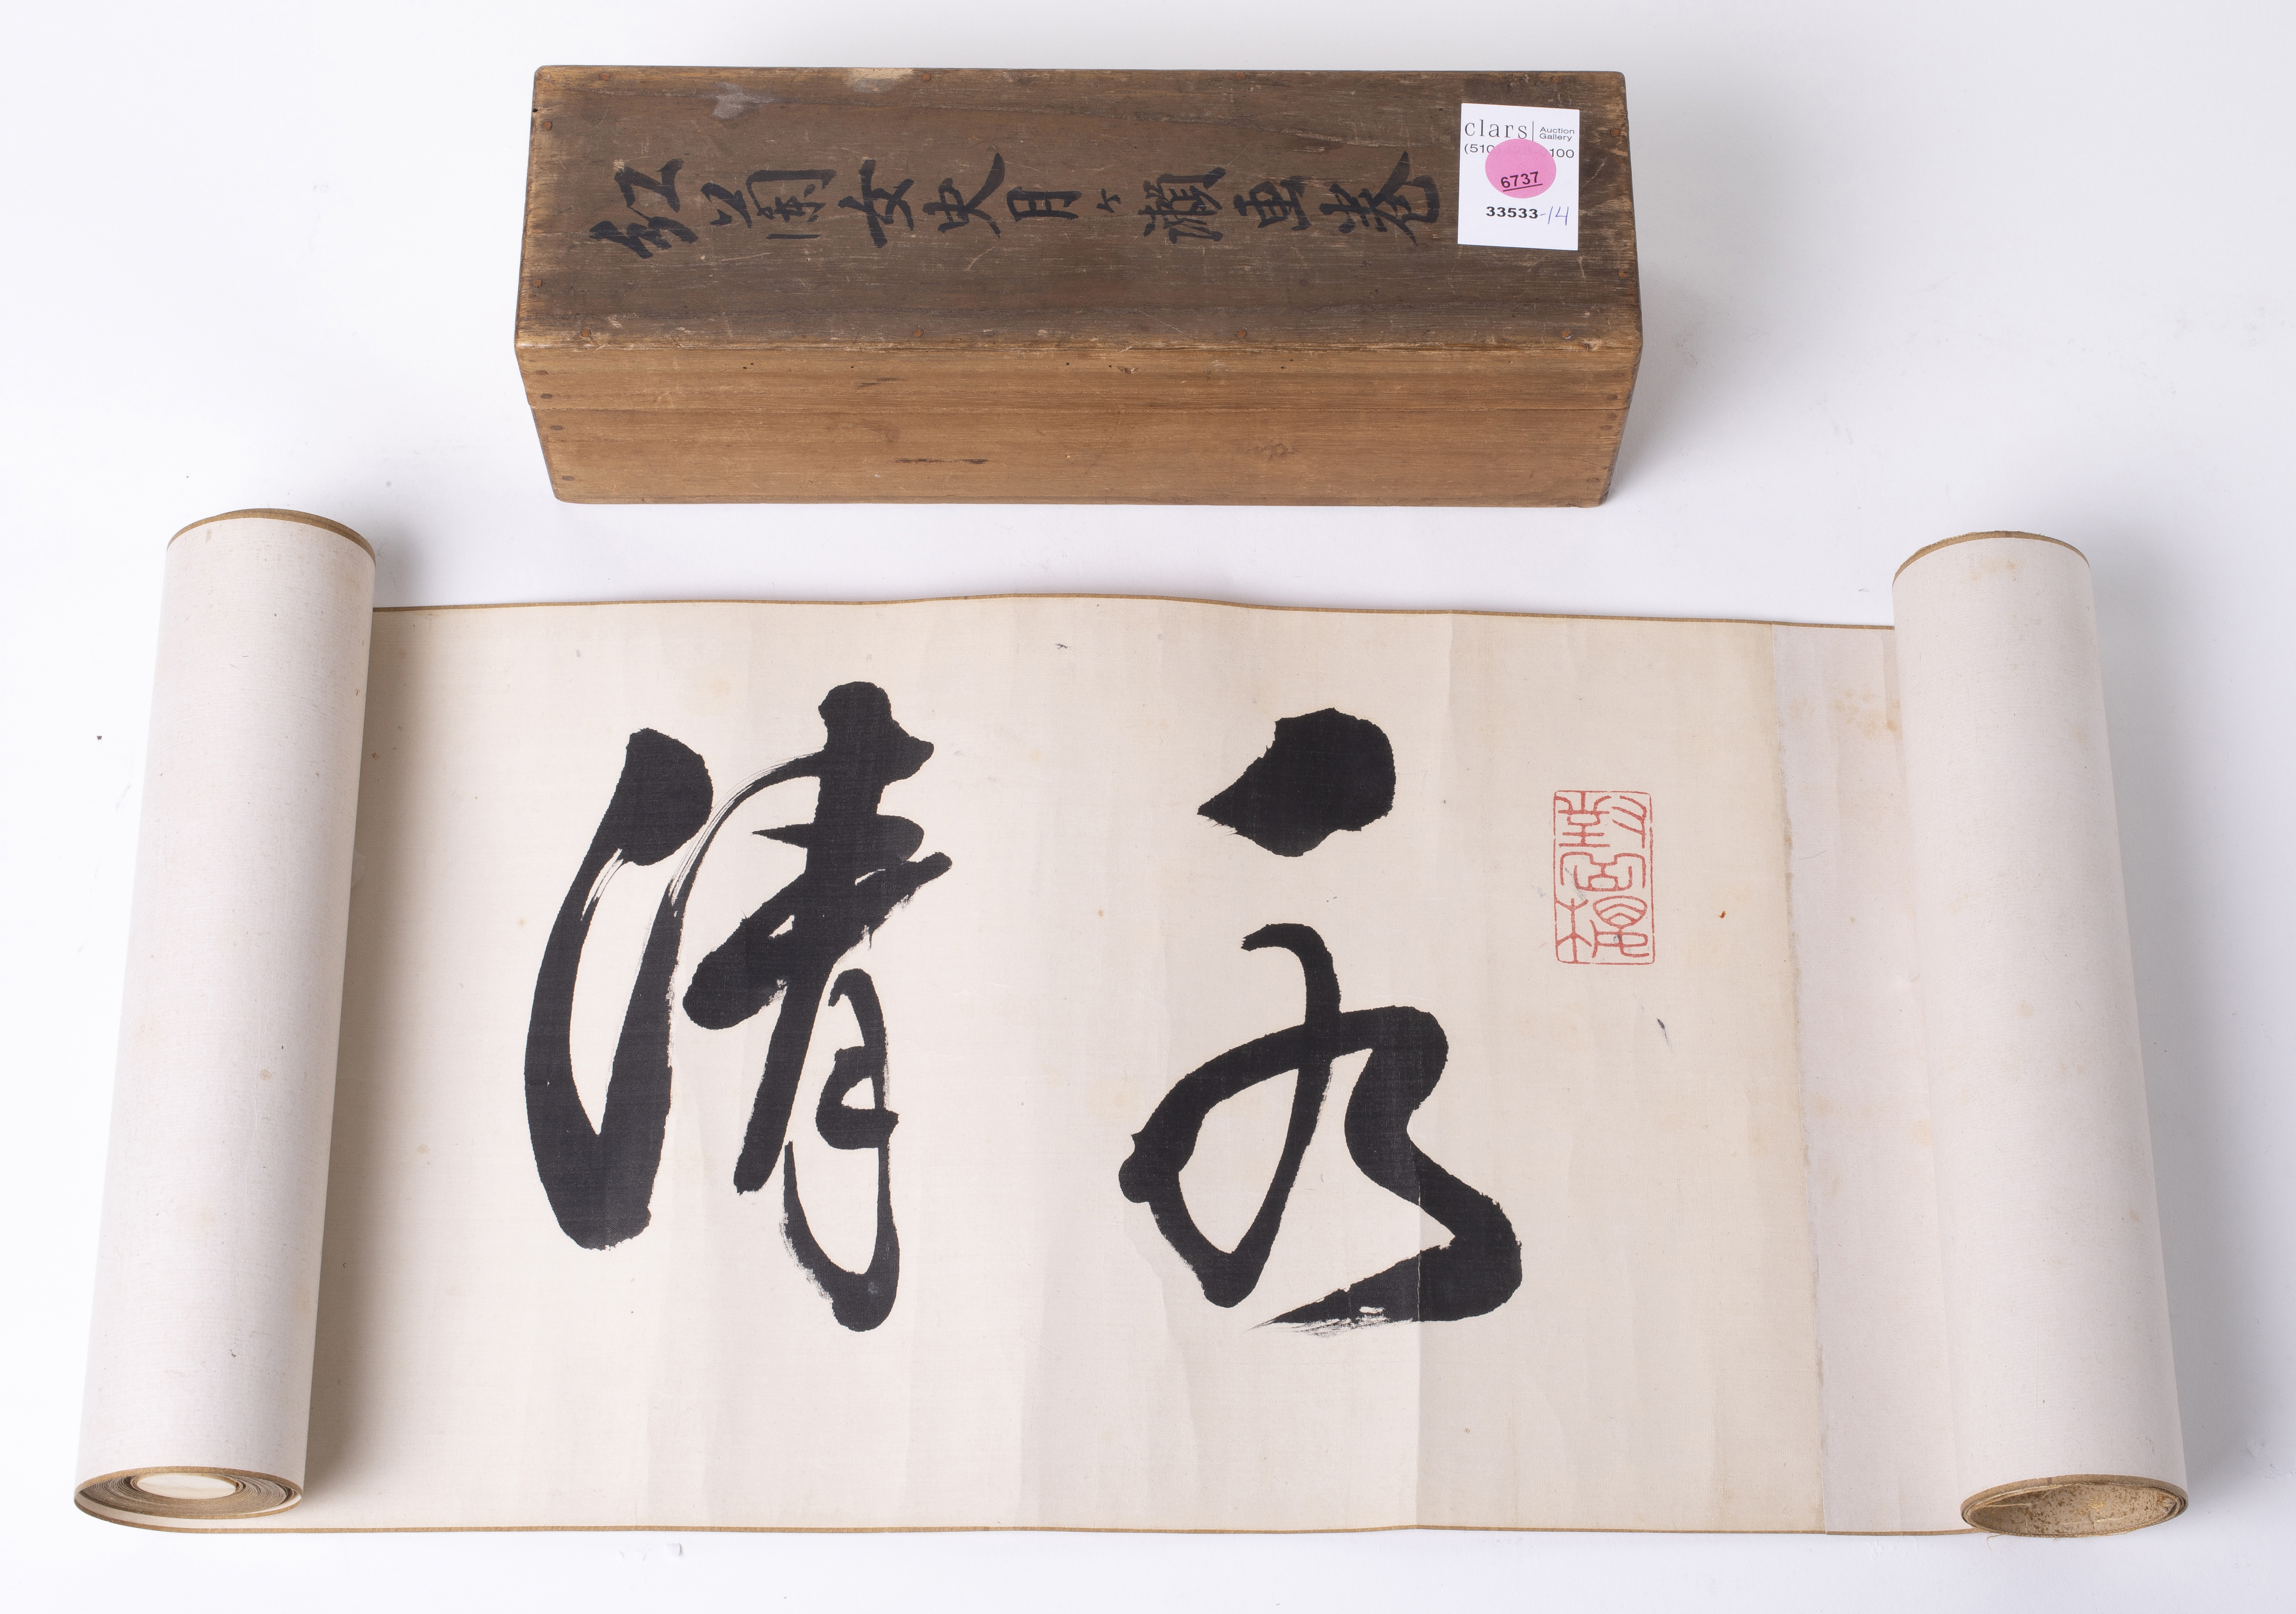 紅蘭女史月ヶ瀬畫巻
clars Auction
Gallery
(510 100
6737
33533-14
永清